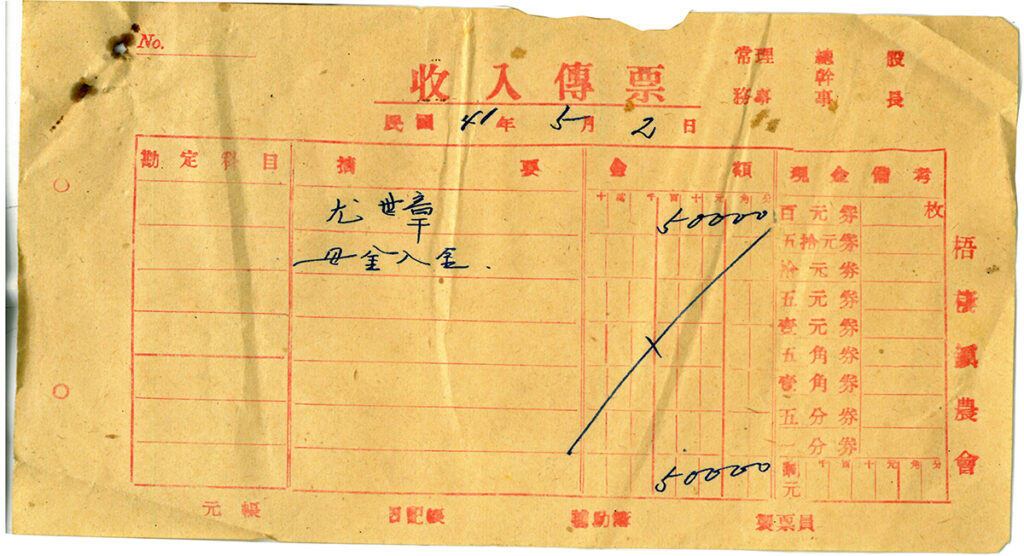 No.
收入傳票
常務理事 總幹事 股長
民國 41 年 5 月 2 日
勘定科目 摘要 金額 現金備考
十萬千百十元角分
尤世章 50000 百元券 枚
母金入金. 五拾元券
拾元券
五元券
壹元券
五角券
壹角券
五分券
一分券
50000 元 千百十元角分
梧棲鎮農會
元帳 日記帳 補助簿 製票員